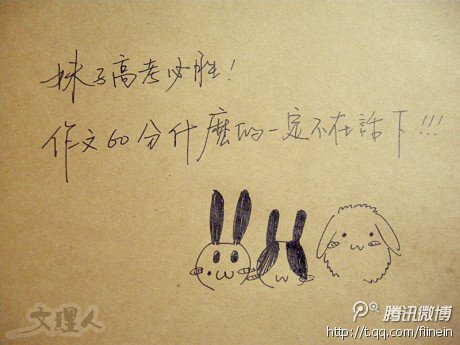 妹子高考必胜！
作文60分什麼的一定不在話下！！！
文理人
腾讯微博
http://t.qq.com/fiinein